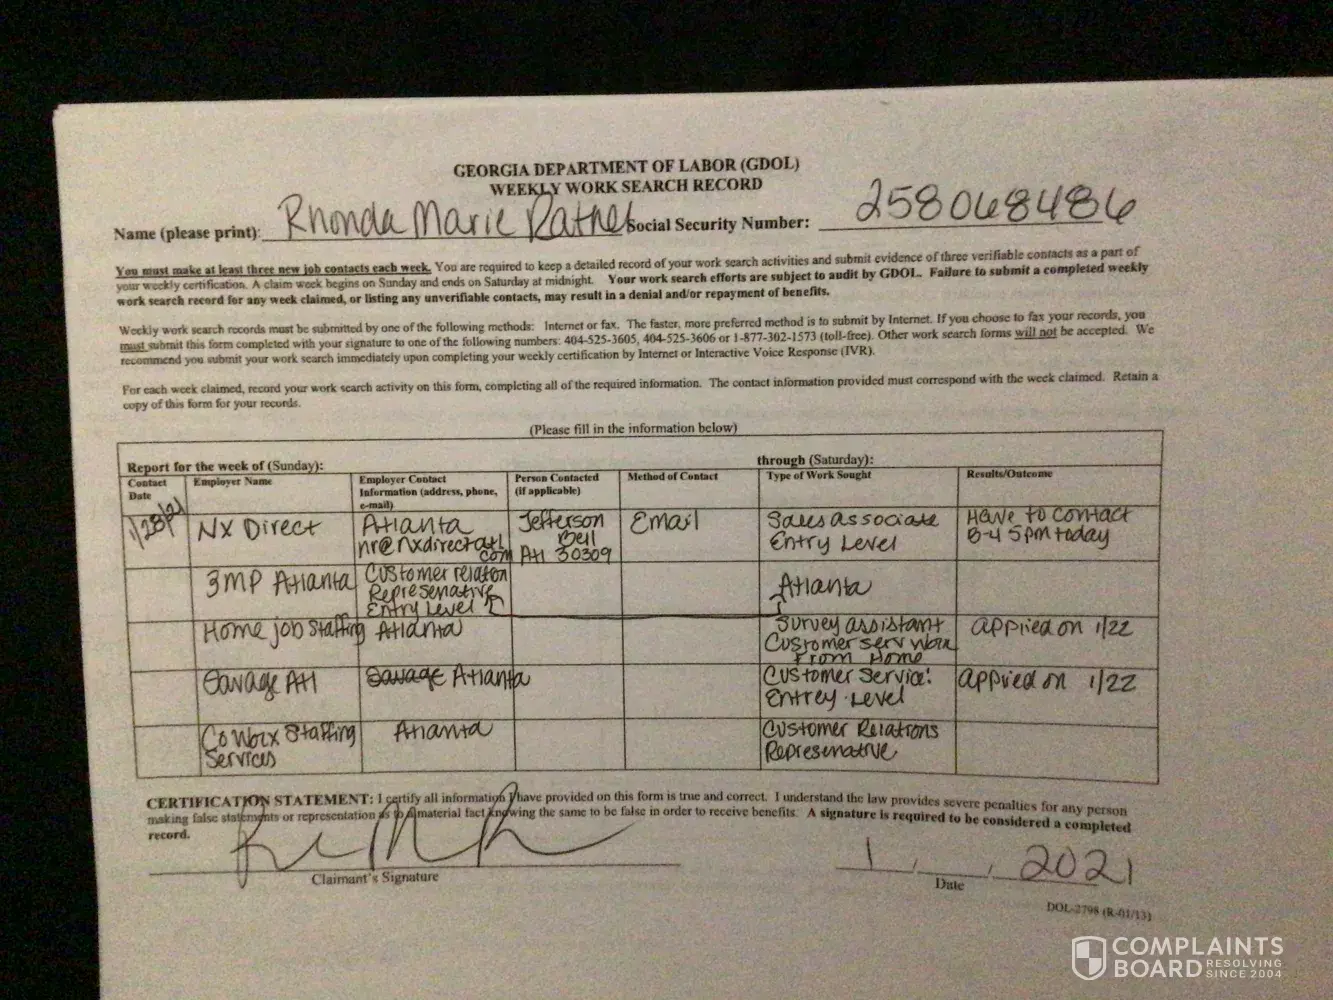 GEORGIA DEPARTMENT OF LABOR (GDOL)
WEEKLY WORK SEARCH RECORD
Name (please print): Rhonda Marie Rathel Social Security Number: [redacted]
You must make at least three new job contacts each week. You are required to keep a detailed record of your work search activities and submit evidence of three verifiable contacts as a part of
your weekly certification. A claim week begins on Sunday and ends on Saturday at midnight. Your work search efforts are subject to audit by GDOL. Failure to submit a completed weekly
work search record for any week claimed, or listing any unverifiable contacts, may result in a denial and/or repayment of benefits.
Weekly work search records must be submitted by one of the following methods: Internet or fax. The faster, more preferred method is to submit by Internet. If you choose to fax your records, you
must submit this form completed with your signature to one of the following numbers: 404-525-3605, 404-525-3606 or 1-877-302-1573 (toll-free). Other work search forms will not be accepted. We
recommend you submit your work search immediately upon completing your weekly certification by Internet or Interactive Voice Response (IVR).
For each week claimed, record your work search activity on this form, completing all of the required information. The contact information provided must correspond with the week claimed. Retain a
copy of this form for your records.
(Please fill in the information below)
Report for the week of (Sunday): through (Saturday):
Contact Date
Employer Name
Employer Contact
Information (address, phone,
e-mail)
Person Contacted
(if applicable)
Method of Contact
Type of Work Sought
Results/Outcome
1/28/21
NX Direct
Atlanta
hr@nxdirectatl
com
Jefferson
Bell
Atl 30309
Email
Sales associate
Entry Level
Have to contact
B-4 5pm today
3MP Atlanta
Customer relation
Represenative
Entry Level
Atlanta
Home job Staffing
Atlanta
Survey assistant
Customer serv work
From Home
applied on 1/22
Savage Atl
Savage Atlanta
Customer Service:
Entrey Level
applied on 1/22
CoWorx Staffing
Services
Atlanta
Customer Relations
Represenative
CERTIFICATION STATEMENT: I certify all information I have provided on this form is true and correct. I understand the law provides severe penalties for any person
making false statements or representation as to a material fact knowing the same to be false in order to receive benefits. A signature is required to be considered a completed
record.
Claimant's Signature
1, , 2021
Date
DOL-2798 (R-01/13)
COMPLAINTS
BOARD RESOLVING
SINCE 2004